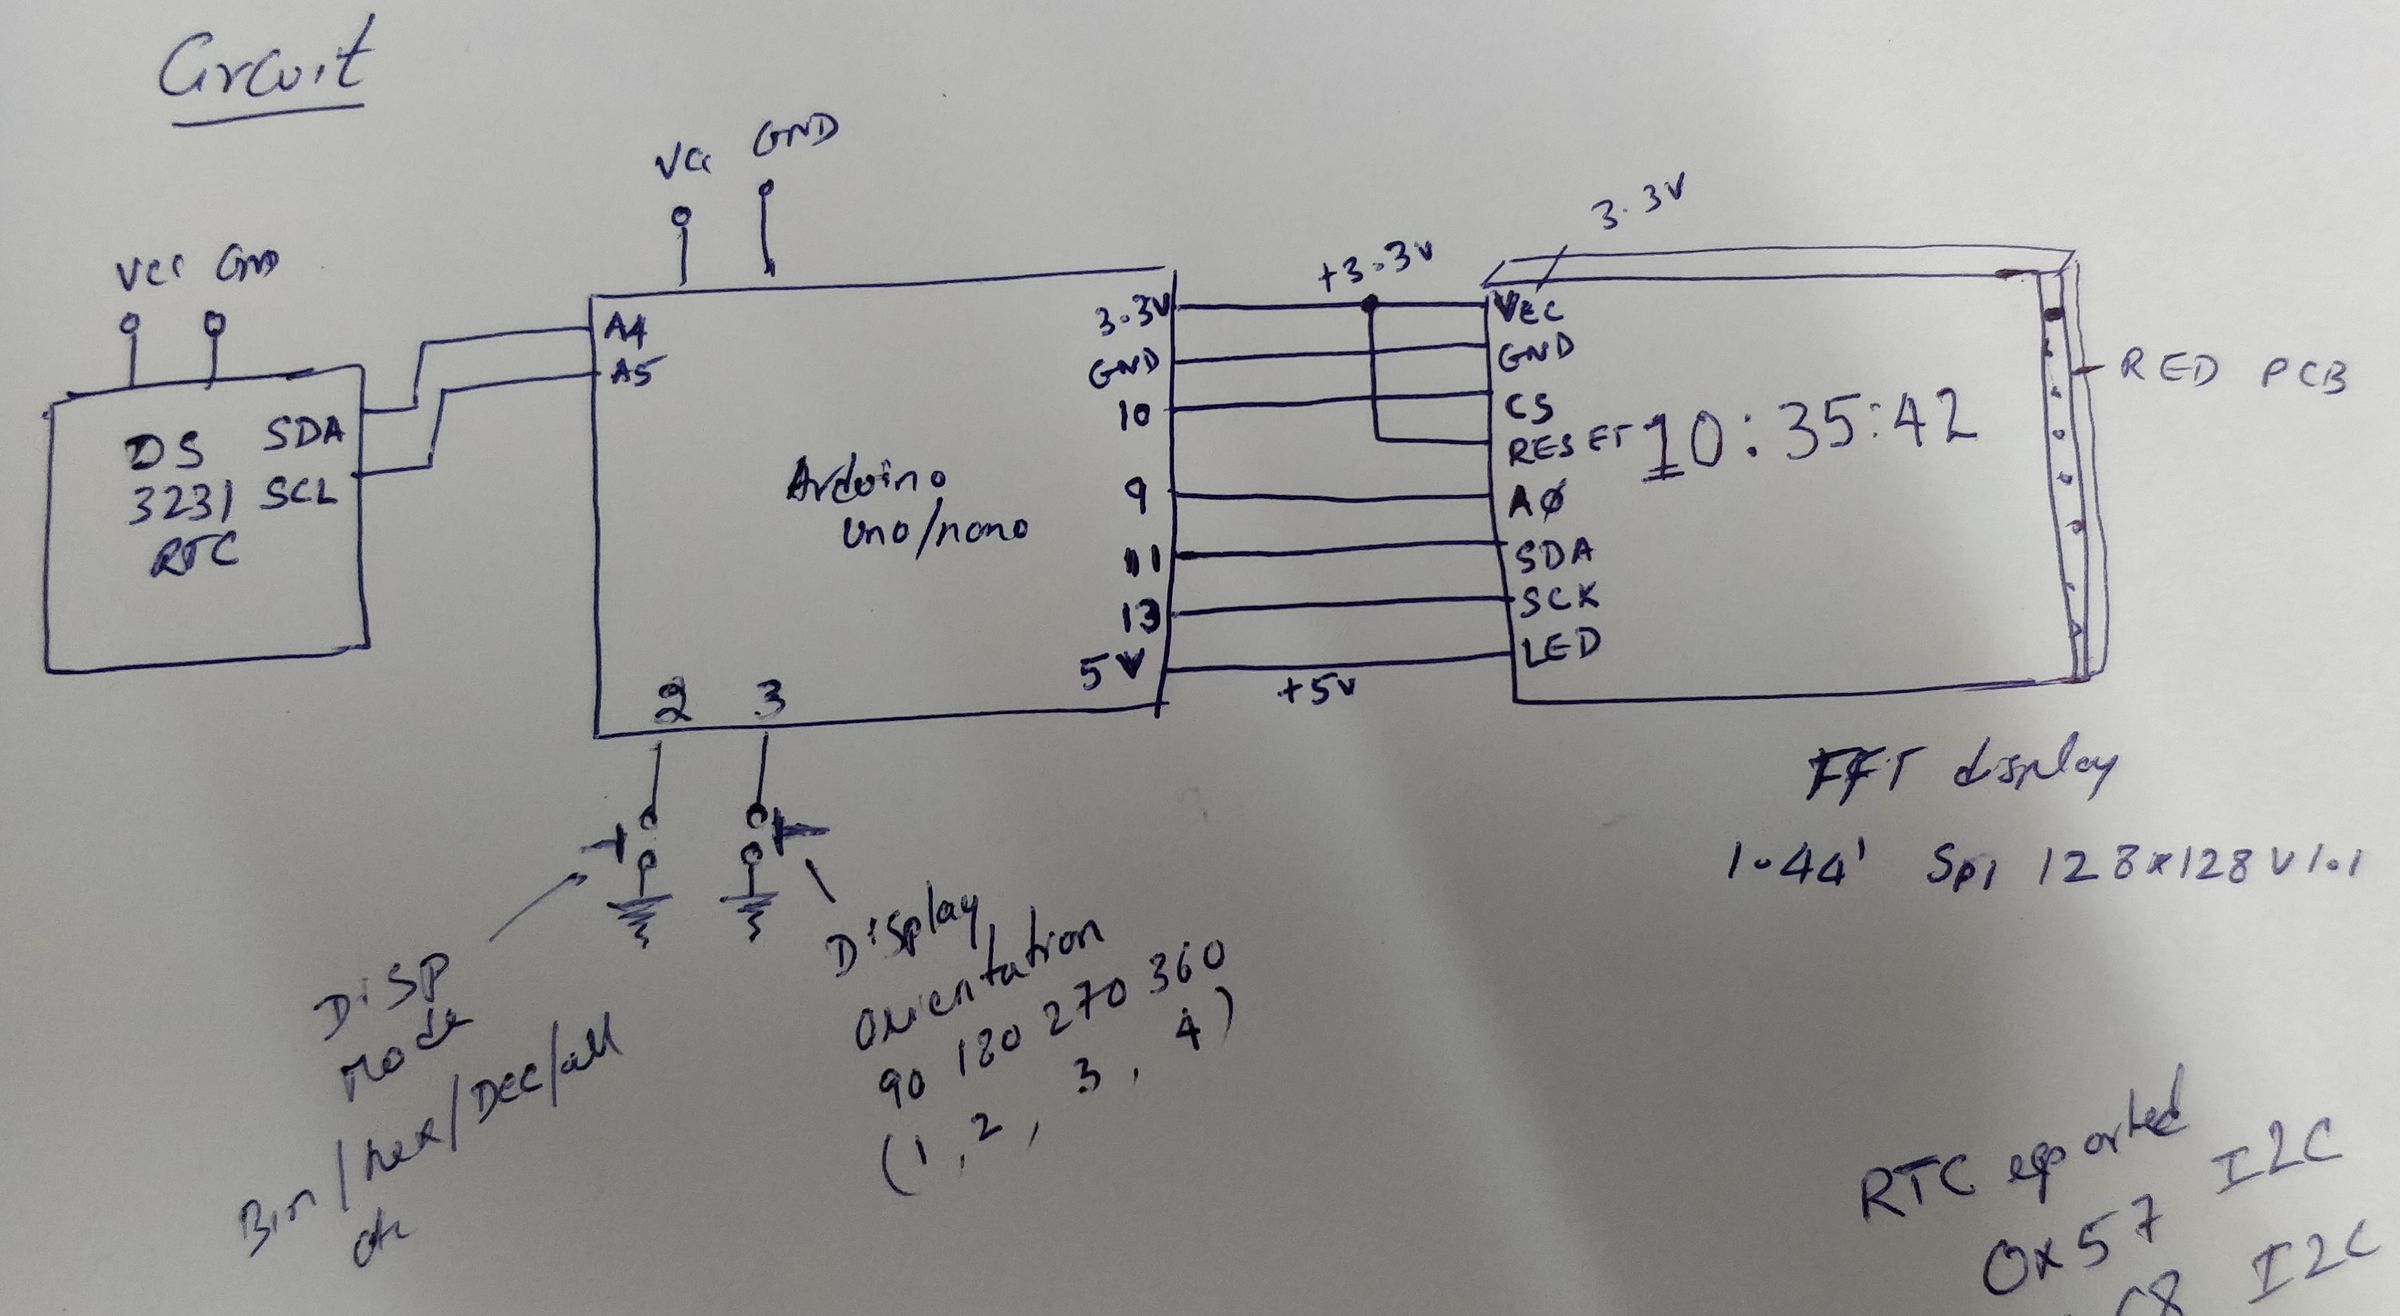 Circuit
Vcc GND
Vcc GND
DS SDA
3231 SCL
RTC
A4
A5
Arduino
Uno/nano
3.3V
GND
10
9
11
13
5V
2 3
+3.3v
+5v
3.3v
VCC
GND
CS
RESET
A0
SDA
SCK
LED
10:35:42
RED PCB
display
1.44' SPI 128x128 V1.1
DISP
Mode
Bin/hex/Dec/all
Display
Orientation
90 180 270 360
(1, 2, 3, 4)
RTC
0x57 I2C
I2C